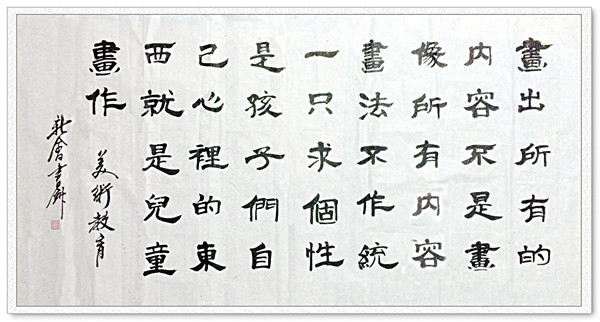 畫出所有的
内容不是畫
像所有内容
畫法不作統
一只求個性
是孩子們自
己心裡的東
西就是兒童
畫作 美術教育